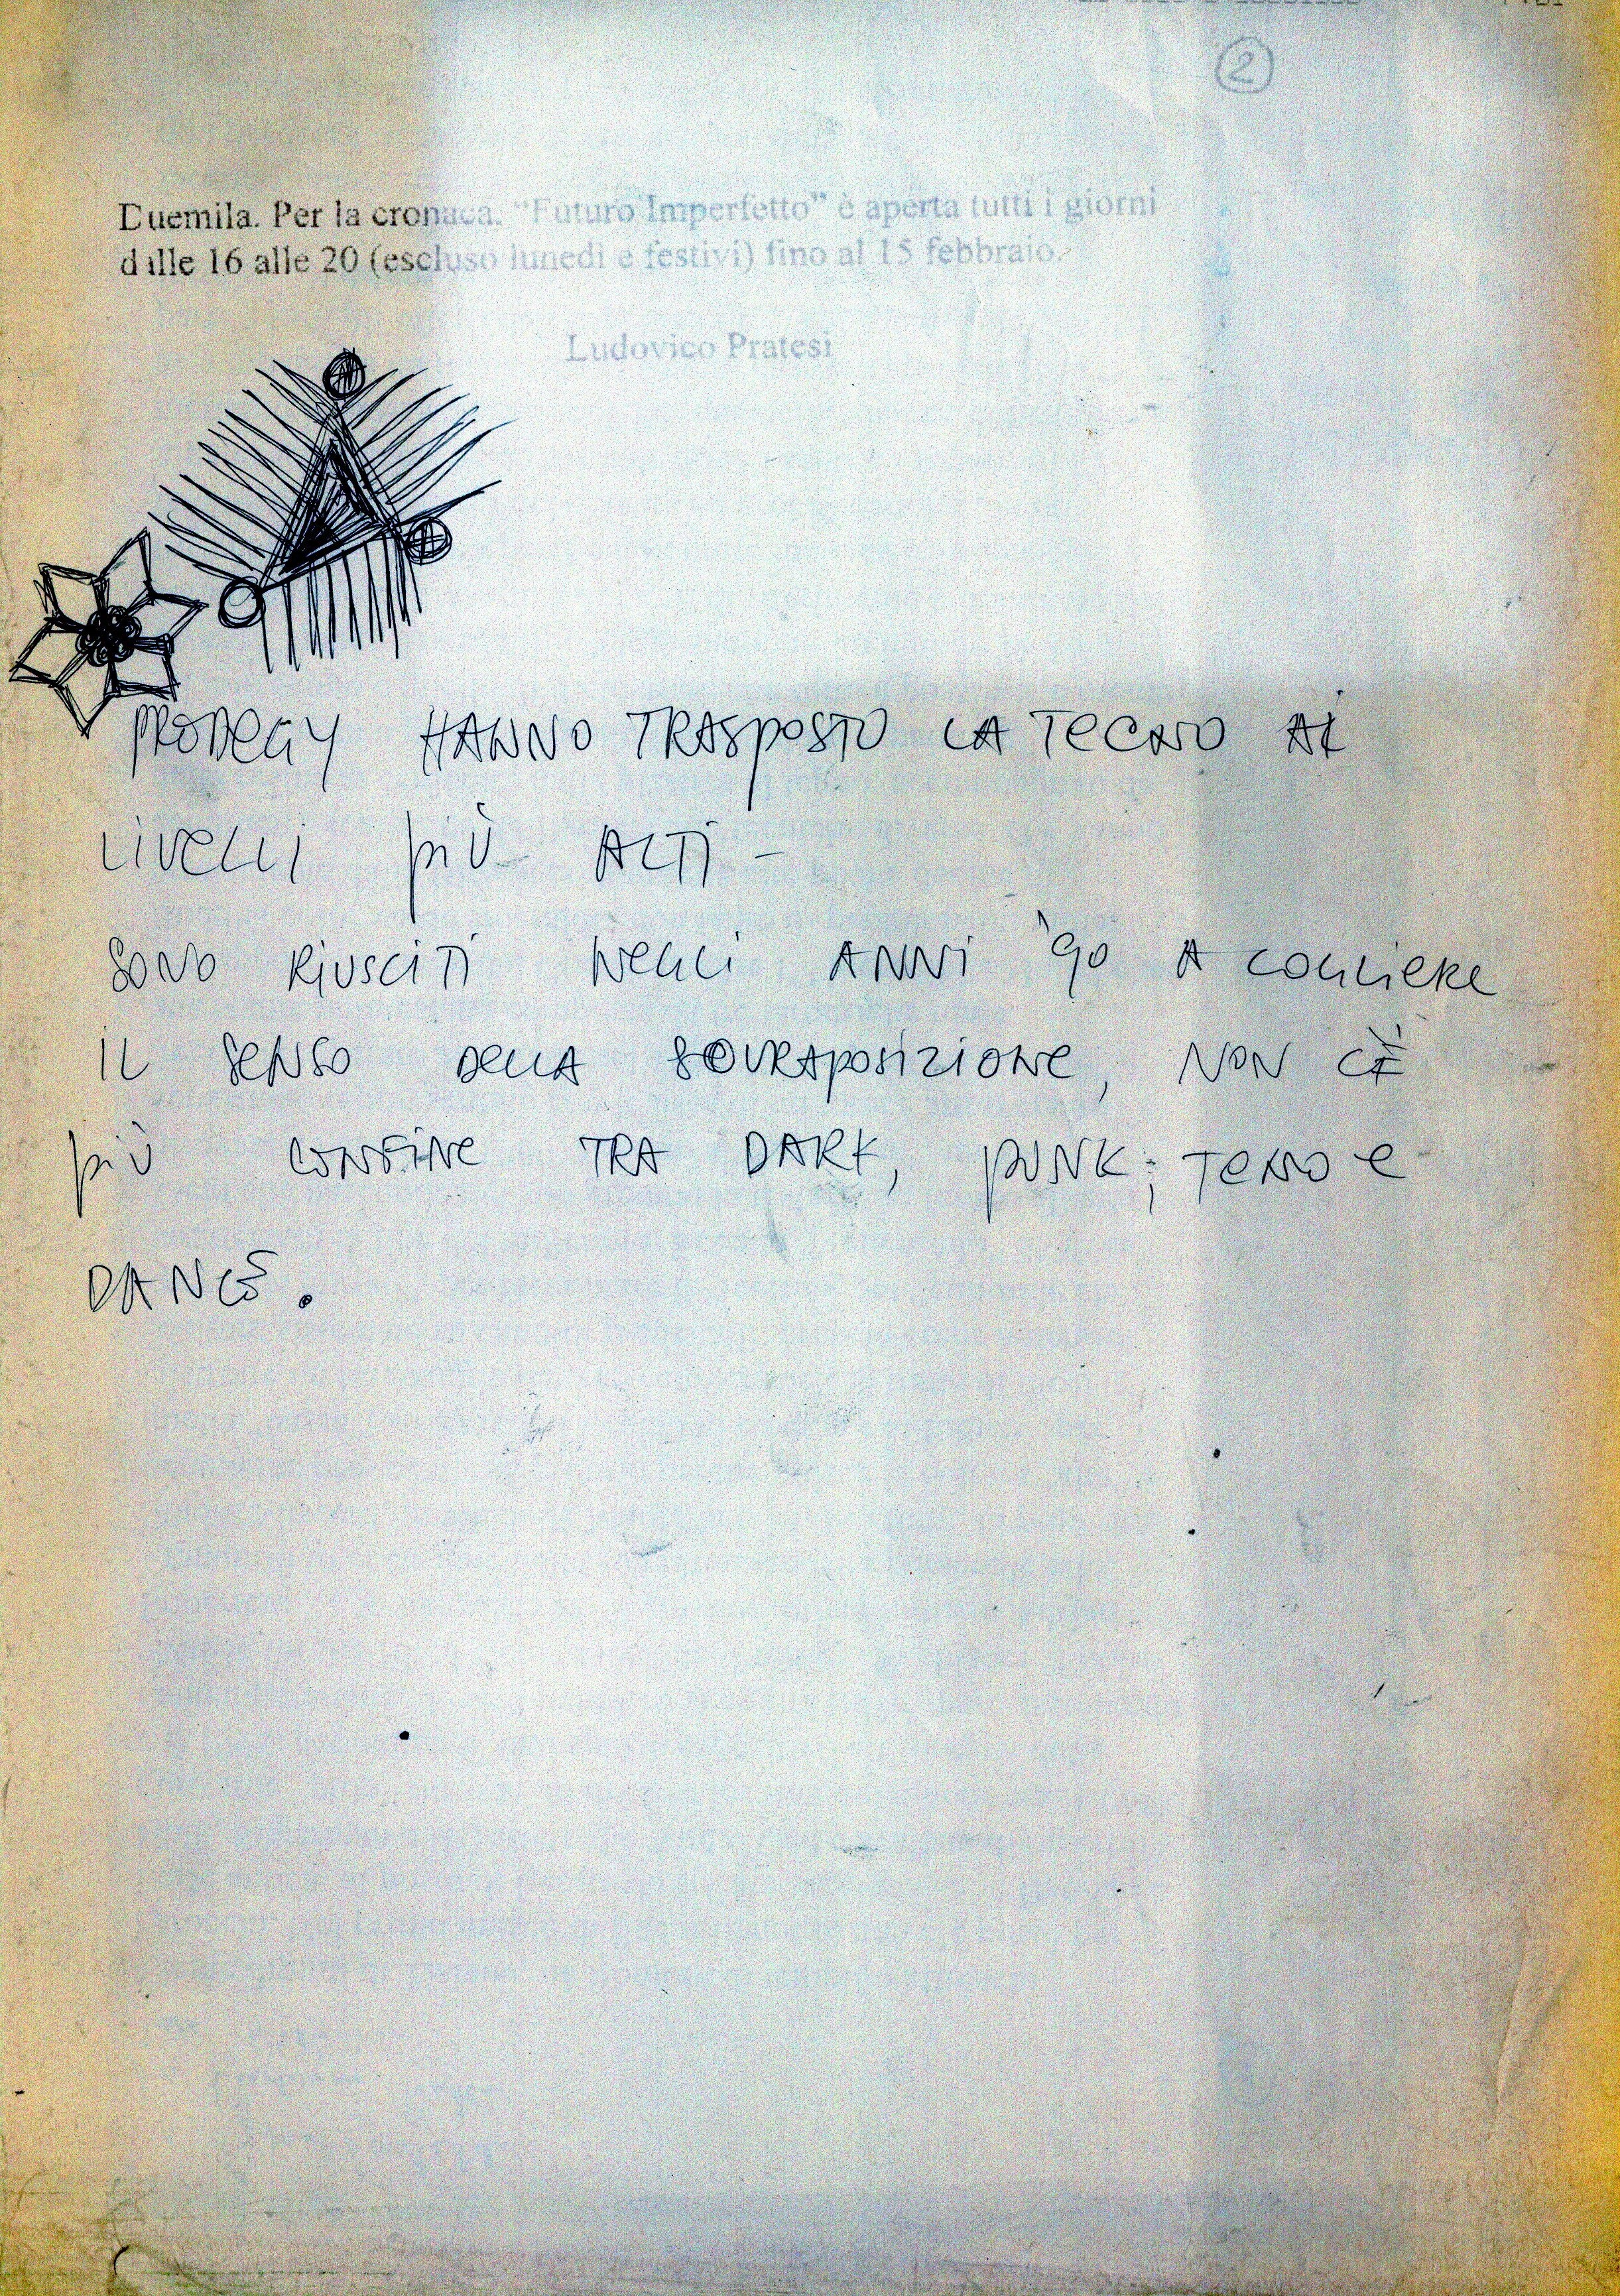 2
Duemila. Per la cronaca. "Futuro Imperfetto" è aperta tutti i giorni
dalle 16 alle 20 (escluso lunedì e festivi) fino al 15 febbraio.
Ludovico Pratesi
PRODEGY HANNO TRASPOSTO LA TECNO AI
LIVELLI PIÙ ALTI -
SONO RIUSCITI NEGLI ANNI '90 A COGLIERE
IL SENSO DELLA SOVRAPOSIZIONE, NON C'È
PIÙ CONFINE TRA DARK, PUNK, TECNO E
DANCE.